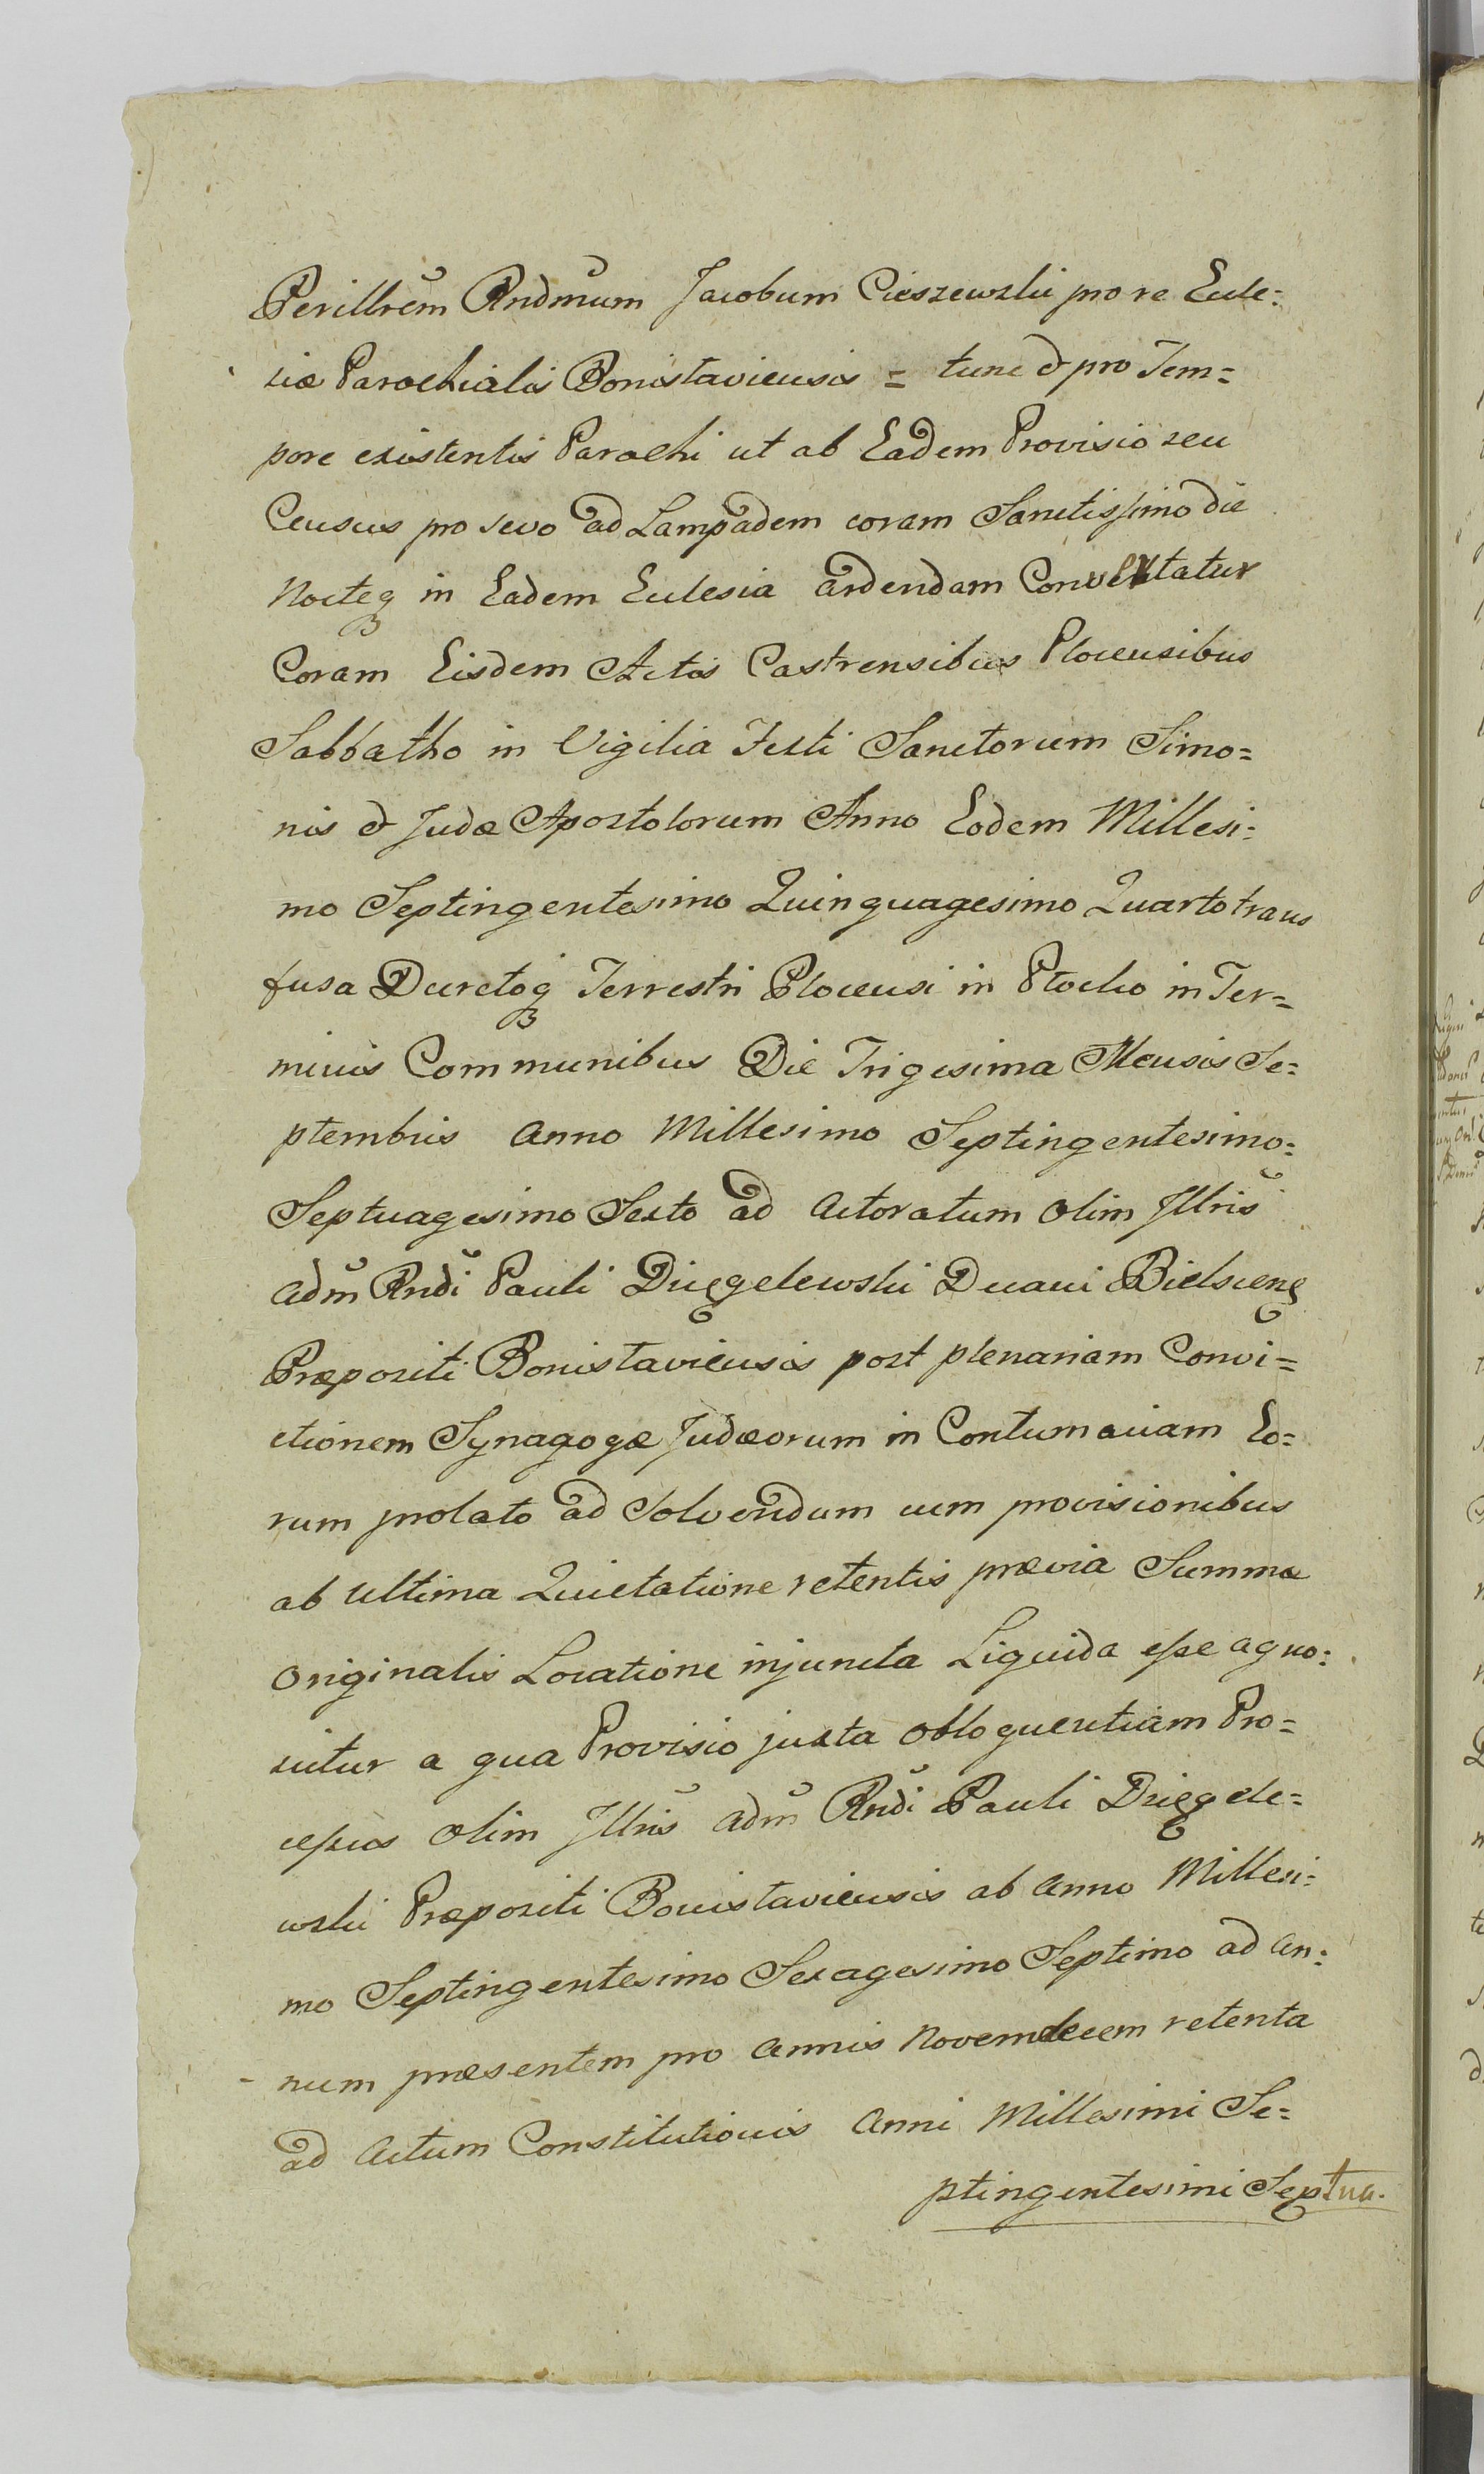 Perillrem Rndmum Jacobum Cieszewski pro re Eccle=
siæ Parochialis Bonislaviensis = tunc & pro Tem=
pore existentis Parochi ut ab Eadem Provisio seu
Census pro sevo ad Lampadem coram Sanctissimo die
Nocteq in Eadem Ecclesia ardendam Convertatur
Coram Eisdem Actis Castrensibus Plocensibus
Sabbatho in Vigilia Festi Sanctorum Simo=
nis & Judæ Apostolorum Anno Eodem Millesi=
mo Septingentesimo Quinquagesimo Quarto trans
fusa Decretoq Terrestri Plocensi in Plocko in Ter=
minis Communibus Die Trigesima Mensis Se=
ptembris Anno Millesimo Septingentesimo=
Septuagesimo Sexto ad Actoratum olim Jllris
adm Rndi Pauli Dzięgelewski Decani Bielscens
Præpositi Bonislaviensis post plenariam Convi=
ctionem Synagogæ Judæorum in Contumaciam Eo=
rum prolato ad Solvendum cum provisionibus
ab ultima Quietatione retentis prævia Summæ
originalis Locatione injuncta Liquida esse agno=
scitur a qua Provisio juxta obloquentiam Pro=
cessus olim Jllris adm Rndi Pauli Dzięgele=
wski Præpositi Bonislaviensis ab anno Millesi=
mo Septingentesimo Sexagesimo Septimo ad an=
num præsentem pro annis Novemdecem retenta
ad Actum Constitutionis Anni Millesimi Se=
ptingentesimi Septua.